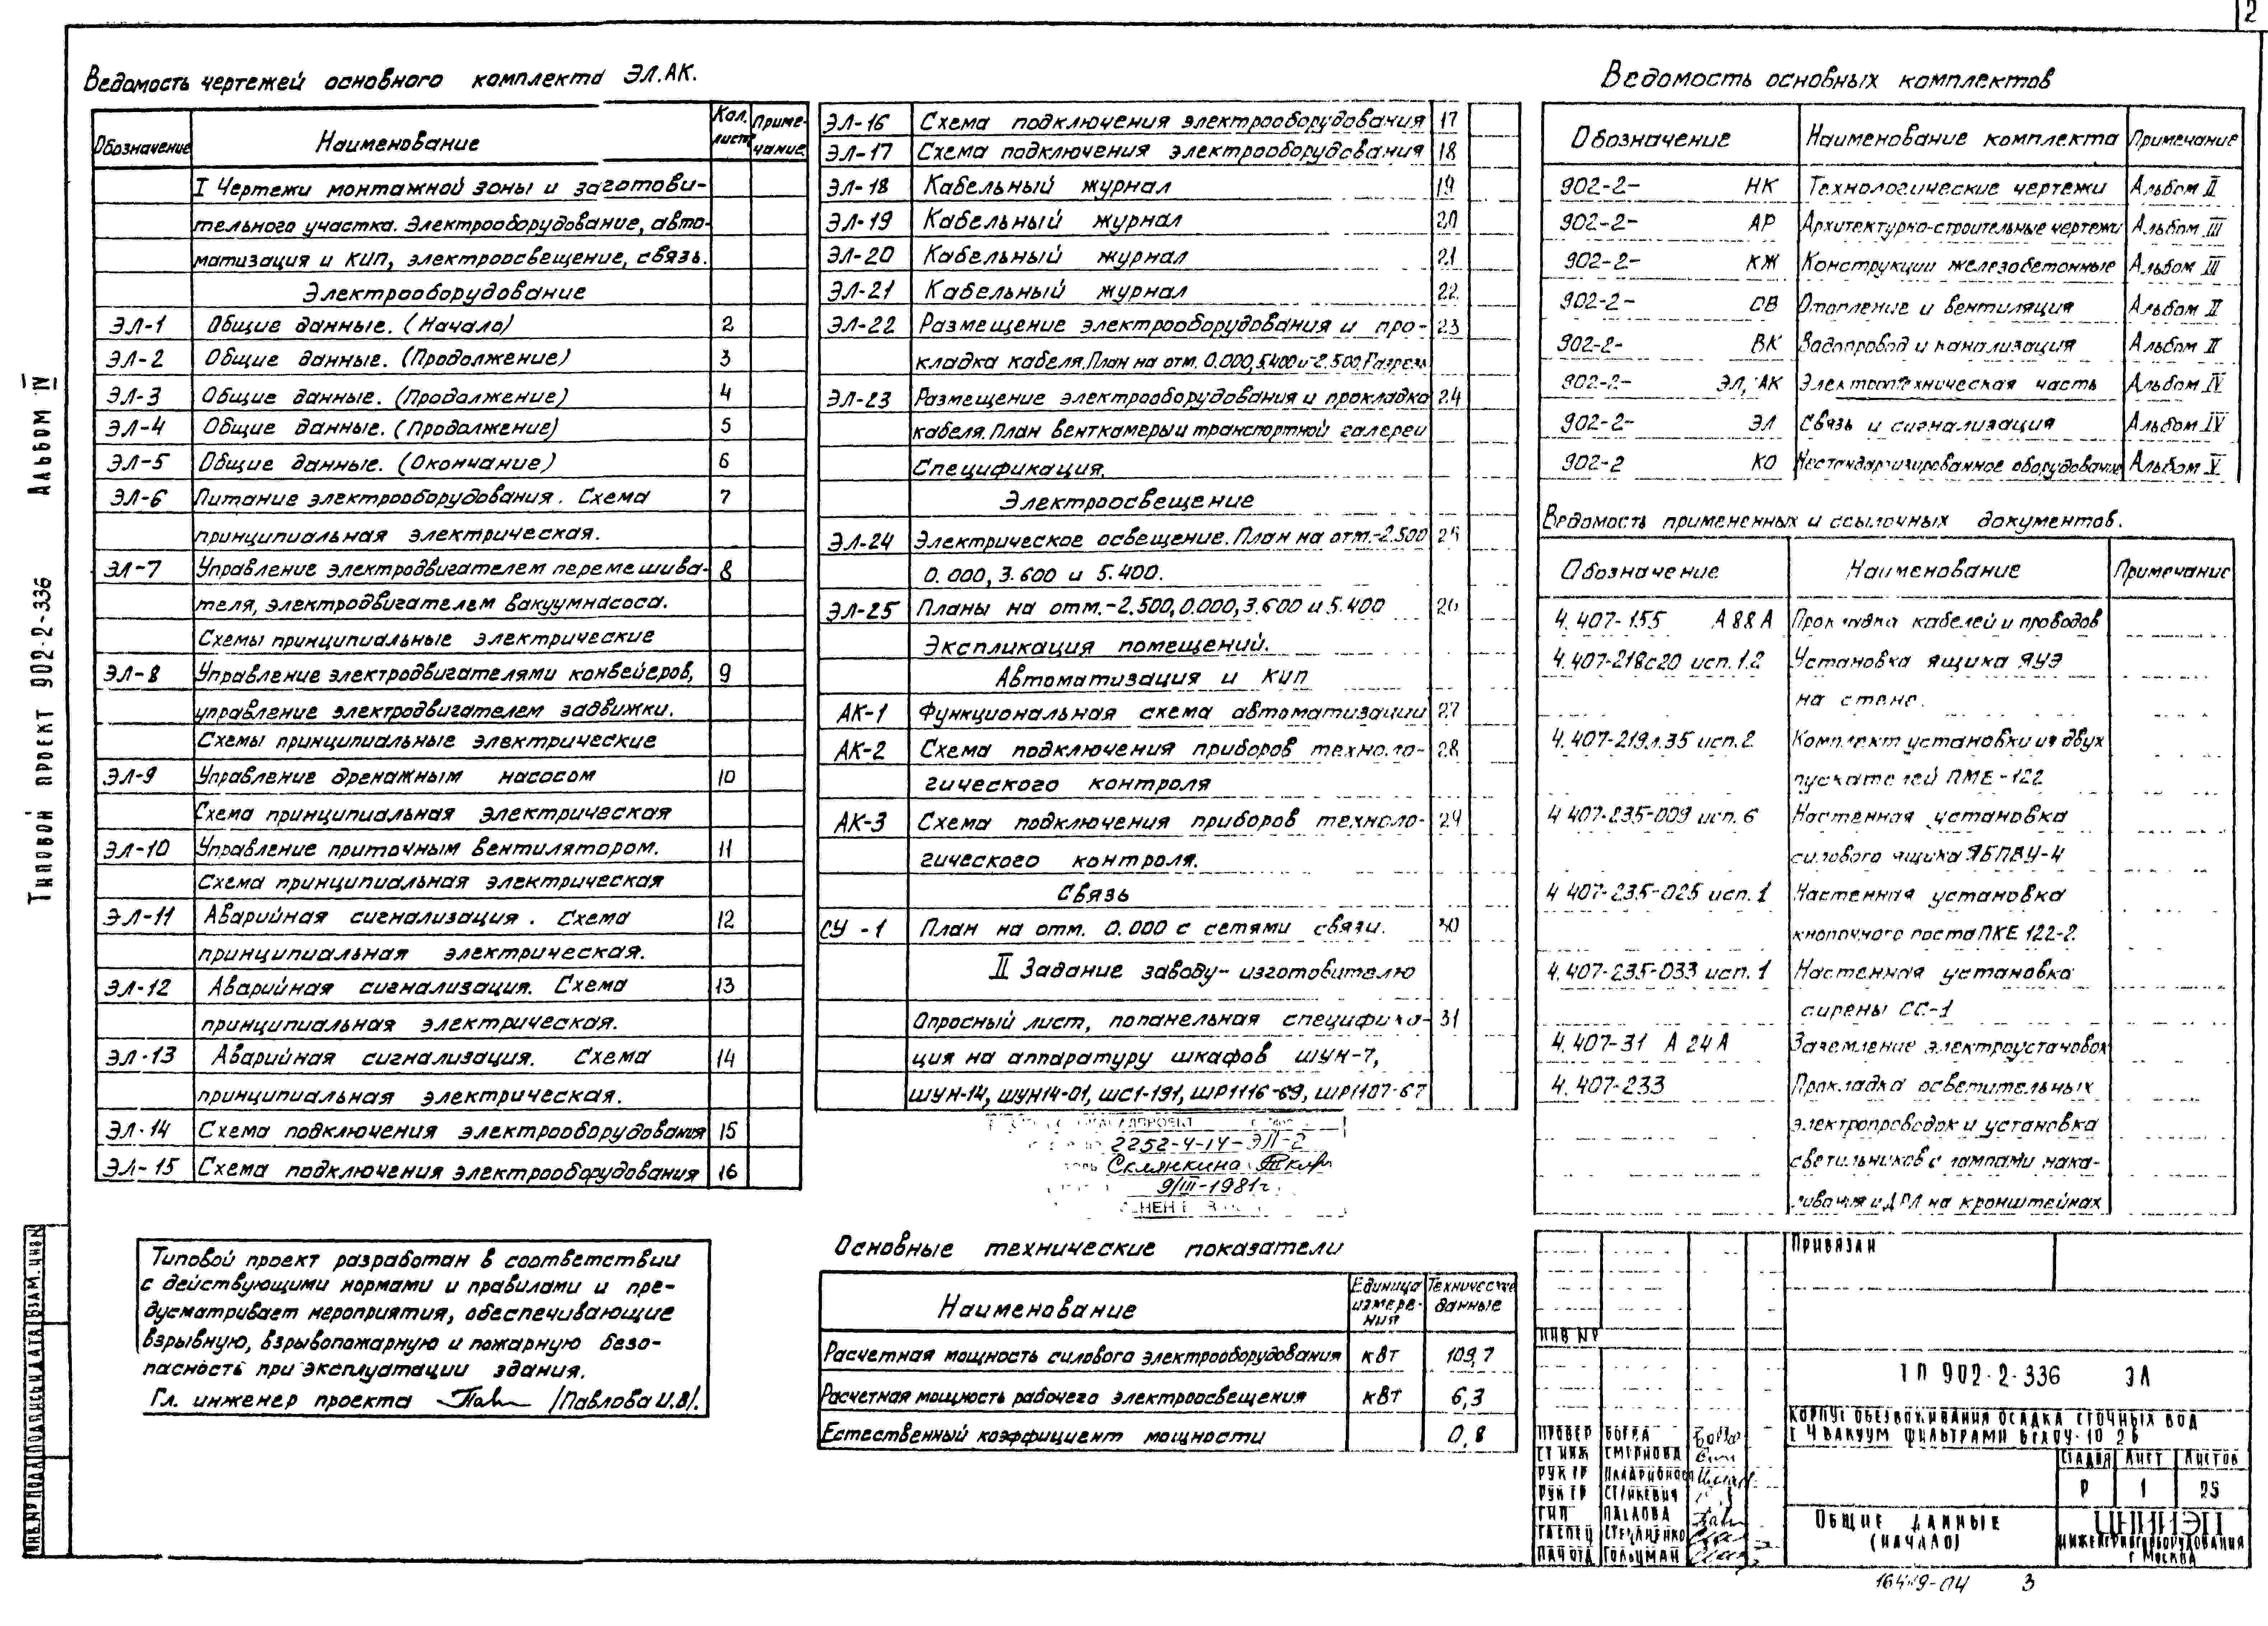 2
Ведомость чертежей основного комплекта ЭЛ.АК.
Обозначение Наименование Кол. лист. Приме-
чание
I Чертежи монтажной зоны и заготови-
тельного участка. Электрооборудование, авто-
матизация и КИП, электроосвещение, связь.
Электрооборудование
ЭЛ-1 Общие данные. (Начало) 2
ЭЛ-2 Общие данные. (Продолжение) 3
ЭЛ-3 Общие данные. (Продолжение) 4
ЭЛ-4 Общие данные. (Продолжение) 5
ЭЛ-5 Общие данные. (Окончание) 6
ЭЛ-6 Питание электрооборудования. Схема 7
принципиальная электрическая.
ЭЛ-7 Управление электродвигателем перемешива- 8
теля, электродвигателем вакуумнасоса.
Схемы принципиальные электрические
ЭЛ-8 Управление электродвигателями конвейеров, 9
управление электродвигателем задвижки.
Схемы принципиальные электрические
ЭЛ-9 Управление дренажным насосом 10
Схема принципиальная электрическая
ЭЛ-10 Управление приточным вентилятором. 11
Схема принципиальная электрическая
ЭЛ-11 Аварийная сигнализация. Схема 12
принципиальная электрическая.
ЭЛ-12 Аварийная сигнализация. Схема 13
принципиальная электрическая.
ЭЛ-13 Аварийная сигнализация. Схема 14
принципиальная электрическая.
ЭЛ-14 Схема подключения электрооборудования 15
ЭЛ-15 Схема подключения электрооборудования 16
ЭЛ-16 Схема подключения электрооборудования 17
ЭЛ-17 Схема подключения электрооборудования 18
ЭЛ-18 Кабельный журнал 19
ЭЛ-19 Кабельный журнал 20
ЭЛ-20 Кабельный журнал 21
ЭЛ-21 Кабельный журнал 22
ЭЛ-22 Размещение электрооборудования и про- 23
кладка кабеля. План на отм. 0.000, 5.400 и -2.500. Разрезы
ЭЛ-23 Размещение электрооборудования и прокладка 24
кабеля. План венткамеры и транспортной галереи
Спецификация.
Электроосвещение
ЭЛ-24 Электрическое освещение. План на отм.-2.500 25
0.000, 3.600 и 5.400.
ЭЛ-25 Планы на отм.-2.500, 0.000, 3.600 и 5.400 26
Экспликация помещений.
Автоматизация и КИП
АК-1 Функциональная схема автоматизации 27
АК-2 Схема подключения приборов техноло- 28
гического контроля
АК-3 Схема подключения приборов техноло- 29
гического контроля.
Связь
СУ-1 План на отм. 0.000 с сетями связи. 30
II Задание заводу-изготовителю
Опросный лист, попанельная специфика- 31
ция на аппаратуру шкафов ШУН-7,
ШУН-14, ШУН14-01, ШС1-191, ШР1116-69, ШР1107-67
2252-4-14-ЭЛ-2
Склянкина
9/III-1981г.
Ведомость основных комплектов
Обозначение Наименование комплекта Примечание
902-2- НК Технологические чертежи Альбом II
902-2- АР Архитектурно-строительные чертежи Альбом III
902-2- КЖ Конструкции железобетонные Альбом III
902-2- ОВ Отопление и вентиляция Альбом II
902-2- ВК Водопровод и канализация Альбом II
902-2- ЭЛ, АК Электротехническая часть Альбом IV
902-2- ЭЛ Связь и сигнализация Альбом IV
902-2 КО Нестандартизированное оборудование Альбом V
Ведомость примененных и ссылочных документов.
Обозначение Наименование Примечание
4.407-155 А88А Прокладка кабелей и проводов
4.407-218с20 исп.1.2 Установка ящика ЯУЭ
на стене.
4.407-219л.35 исп.2 Комплект установки из двух
пускателей ПМЕ-122
4 407-235-009 исп. 6 Настенная установка
силового ящика ЯБПВУ-4
4 407-235-025 исп. 1 Настенная установка
кнопочного поста ПКЕ 122-2.
4.407-235-033 исп. 1 Настенная установка
сирены СС-1
4.407-31 А24А Заземление электроустановок
4.407-233 Прокладка осветительных
электропроводок и установка
светильников с лампами нака-
ливания и ДРЛ на кронштейнах
Типовой проект разработан в соответствии
с действующими нормами и правилами и пре-
дусматривает мероприятия, обеспечивающие
взрывную, взрывопожарную и пожарную безо-
пасность при эксплуатации здания.
Гл. инженер проекта /Павлова И.В/.
Основные технические показатели
Наименование Единица измере-
ния Технические данные
Расчетная мощность силового электрооборудования кВт 109,7
Расчетная мощность рабочего электроосвещения кВт 6,3
Естественный коэффициент мощности 0,8
Привязан
ИНВ №
ТП 902-2-336 ЭЛ
Корпус обезвоживания осадка сточных вод
с 4 вакуум фильтрами
Стадия Лист Листов
Р 1 25
Провер
Ст инж Смирнова
Рук гр Илларионова
Рук гр
ГИП Павлова
Гл спец Степаненко
Нач отд Гольцман
Общие данные
(начало)
ЦНИИЭП
инженерного оборудования
г Москва
-04 3
Типовой проект 902-2-336 Альбом IV
ИНВ.№ ПОДЛ ПОДПИСЬ И ДАТА ВЗАМ.ИНВ.№